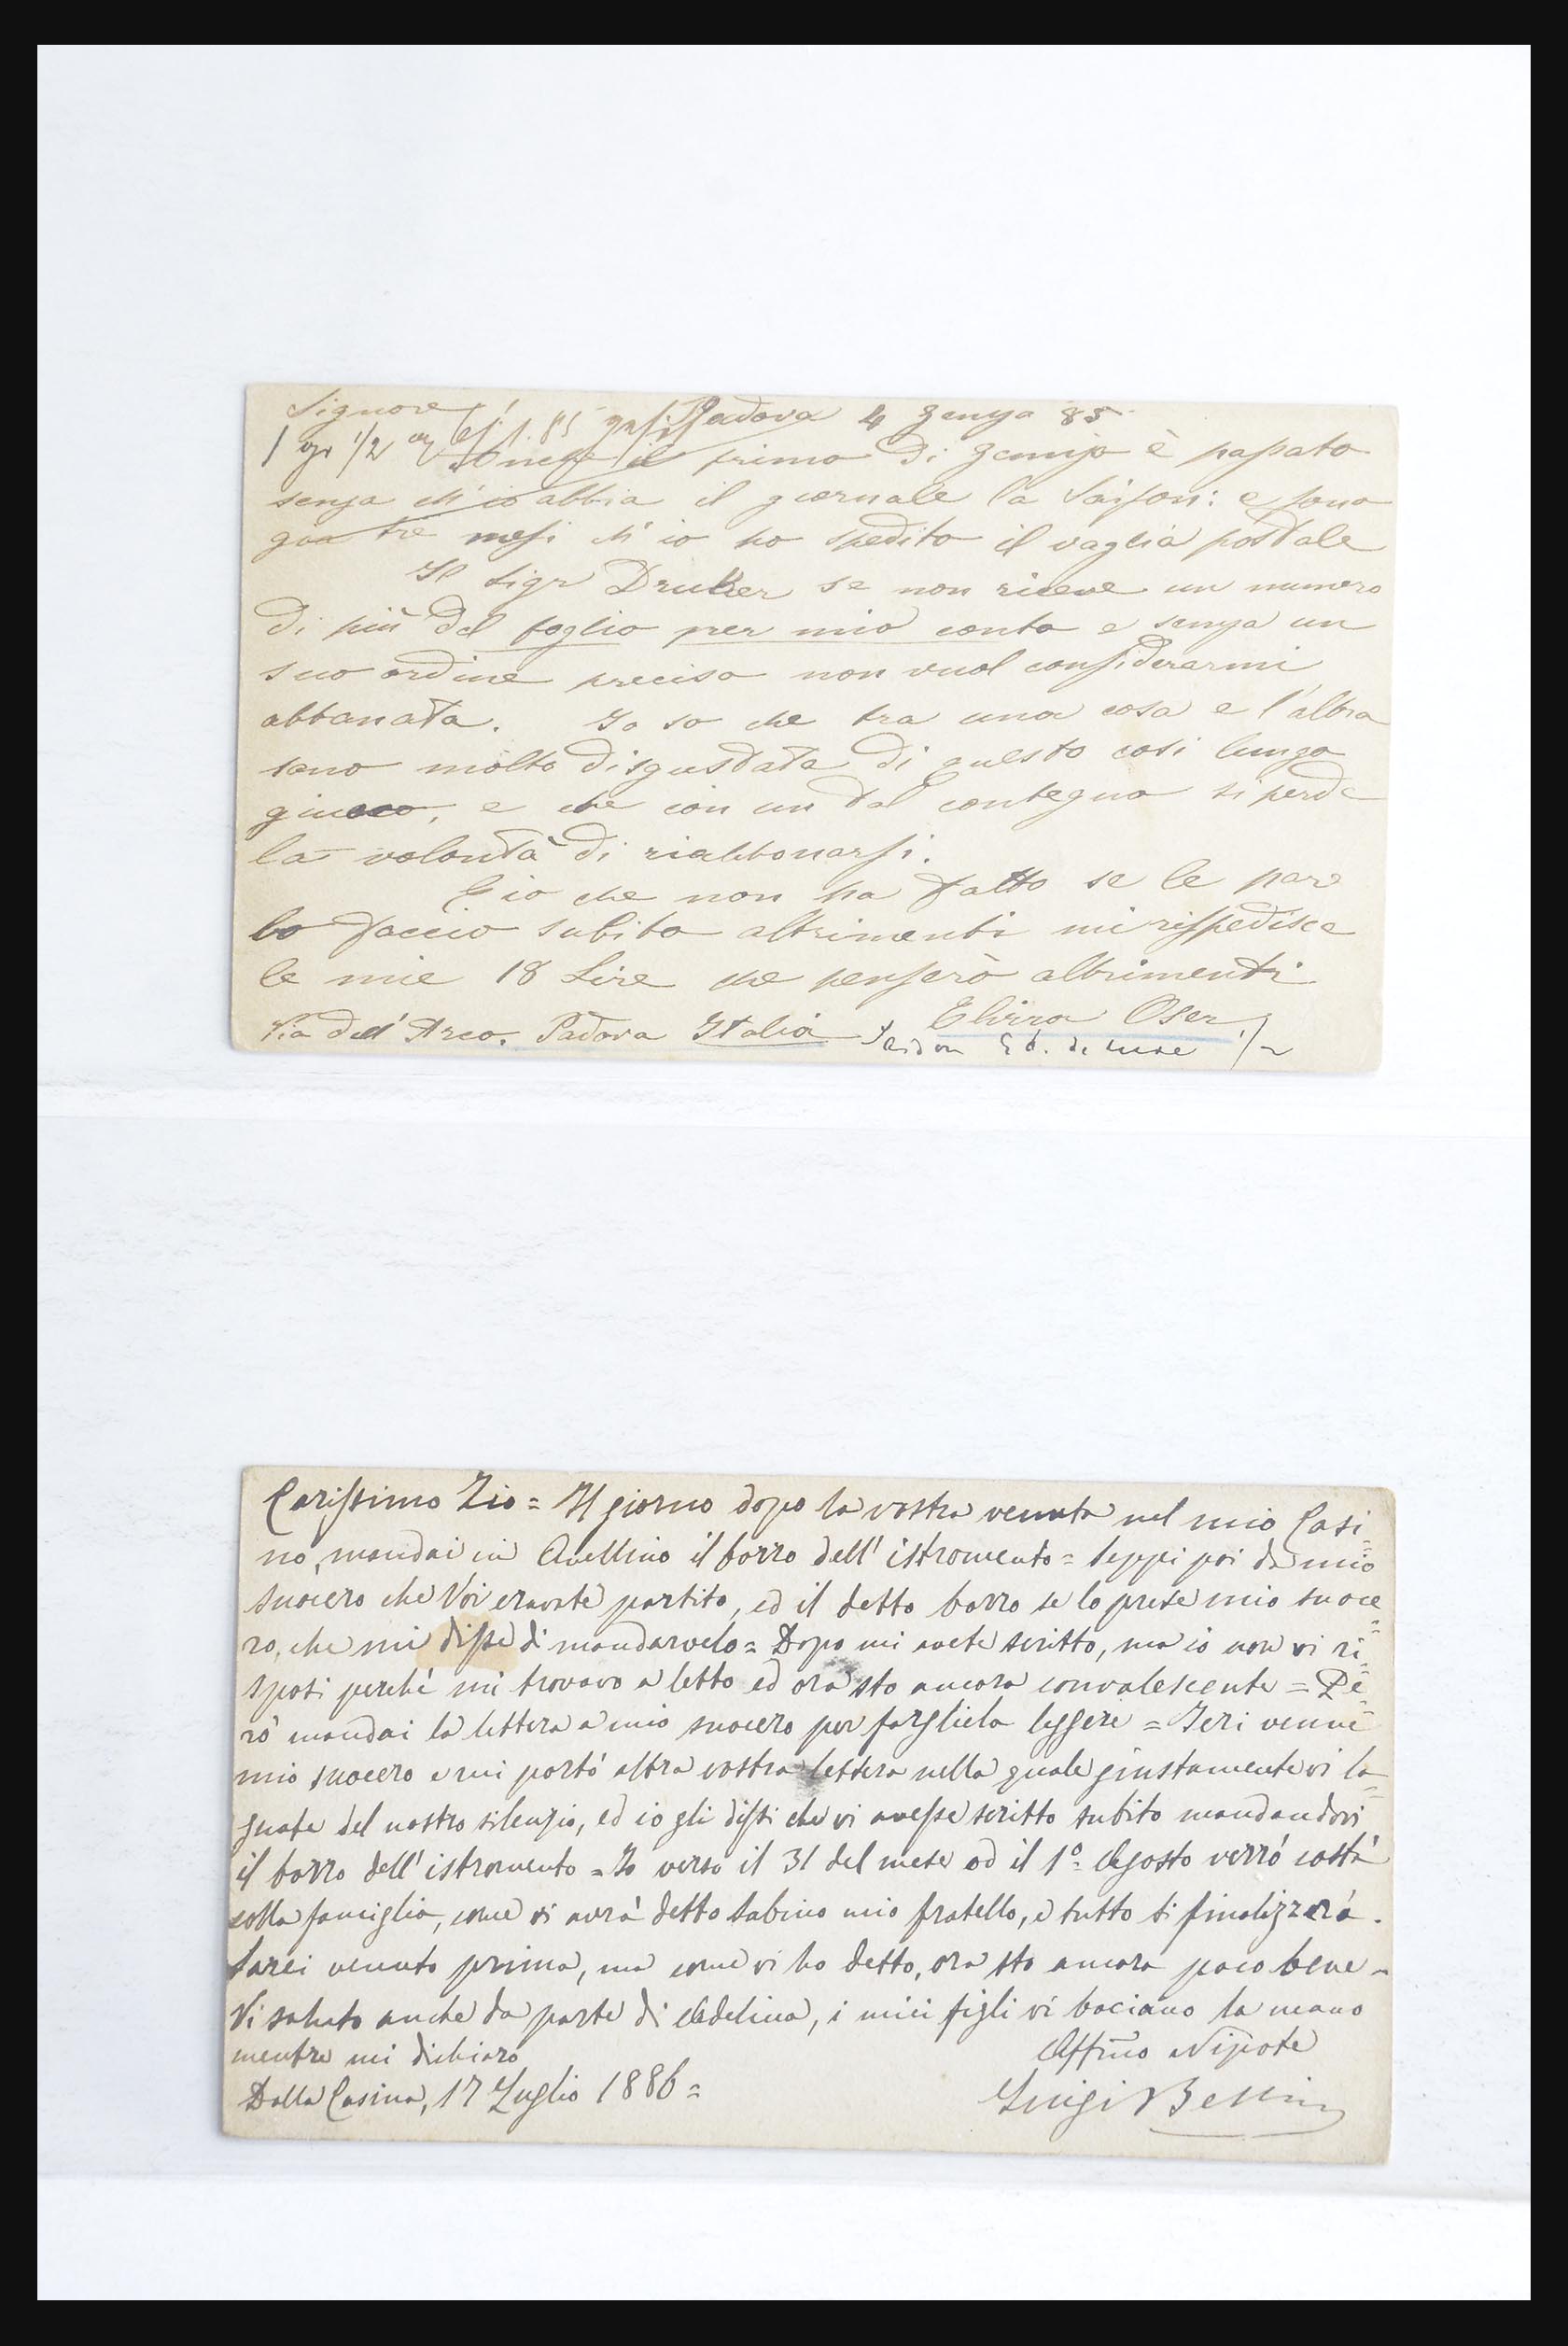 Signore! Padova 4 Genajo 85
il primo di Genajo è passato
senza ch'io abbia il giornale la Saison: e sono
già tre mesi ch'io ho spedito il vaglia postale
Il Sigr Druker se non riceve un numero
di più del foglio per mio conto e senza un
suo ordine preciso non vuol considerarmi
abbonata. Io so che tra una cosa e l'altra
sono molto disgustata di questo così lungo
giuoco, e che con un tal contegno si perde
la volontà di riabbonarsi.
Ciò che non ha fatto se le pare
lo faccio subito altrimenti mi rispedisca
le mie 18 Lire che penserò altrimenti
Via dell'Arco. Padova Italia Elvira Oser
Carissimo Zio = Il giorno dopo la vostra venuta nel mio Casi=
no, mandai in Avellino il borro dell'istromento = Seppi poi da mio
suocero che Voi eravate partito, ed il detto borro se lo prese mio suoce=
ro, che mi disse di mandarvelo = Dopo mi avete scritto, ma io non vi ri=
sposi perché mi trovavo a letto ed ora sto ancora convalescente = Pe=
rò mandai la lettera a mio suocero per fargliela leggere = Ieri venne
mio suocero e mi portò altra vostra lettera nella quale giustamente vi la=
gnate del nostro silenzio, ed io gli dissi che vi avesse scritto subito mandandovi
il borro dell'istromento = Io verso il 31 del mese od il 1º Agosto verrò costà
colla famiglia, come vi avrà detto Sabino mio fratello, e tutto si finalizzerà.
Sarei venuto prima, ma come vi ho detto, ora sto ancora poco bene =
Vi saluto anche da parte di Adelina, i miei figli vi baciano la mano
mentre mi dichiaro Affmo Nipote
Dalla Casina, 17 Luglio 1886 = Luigi